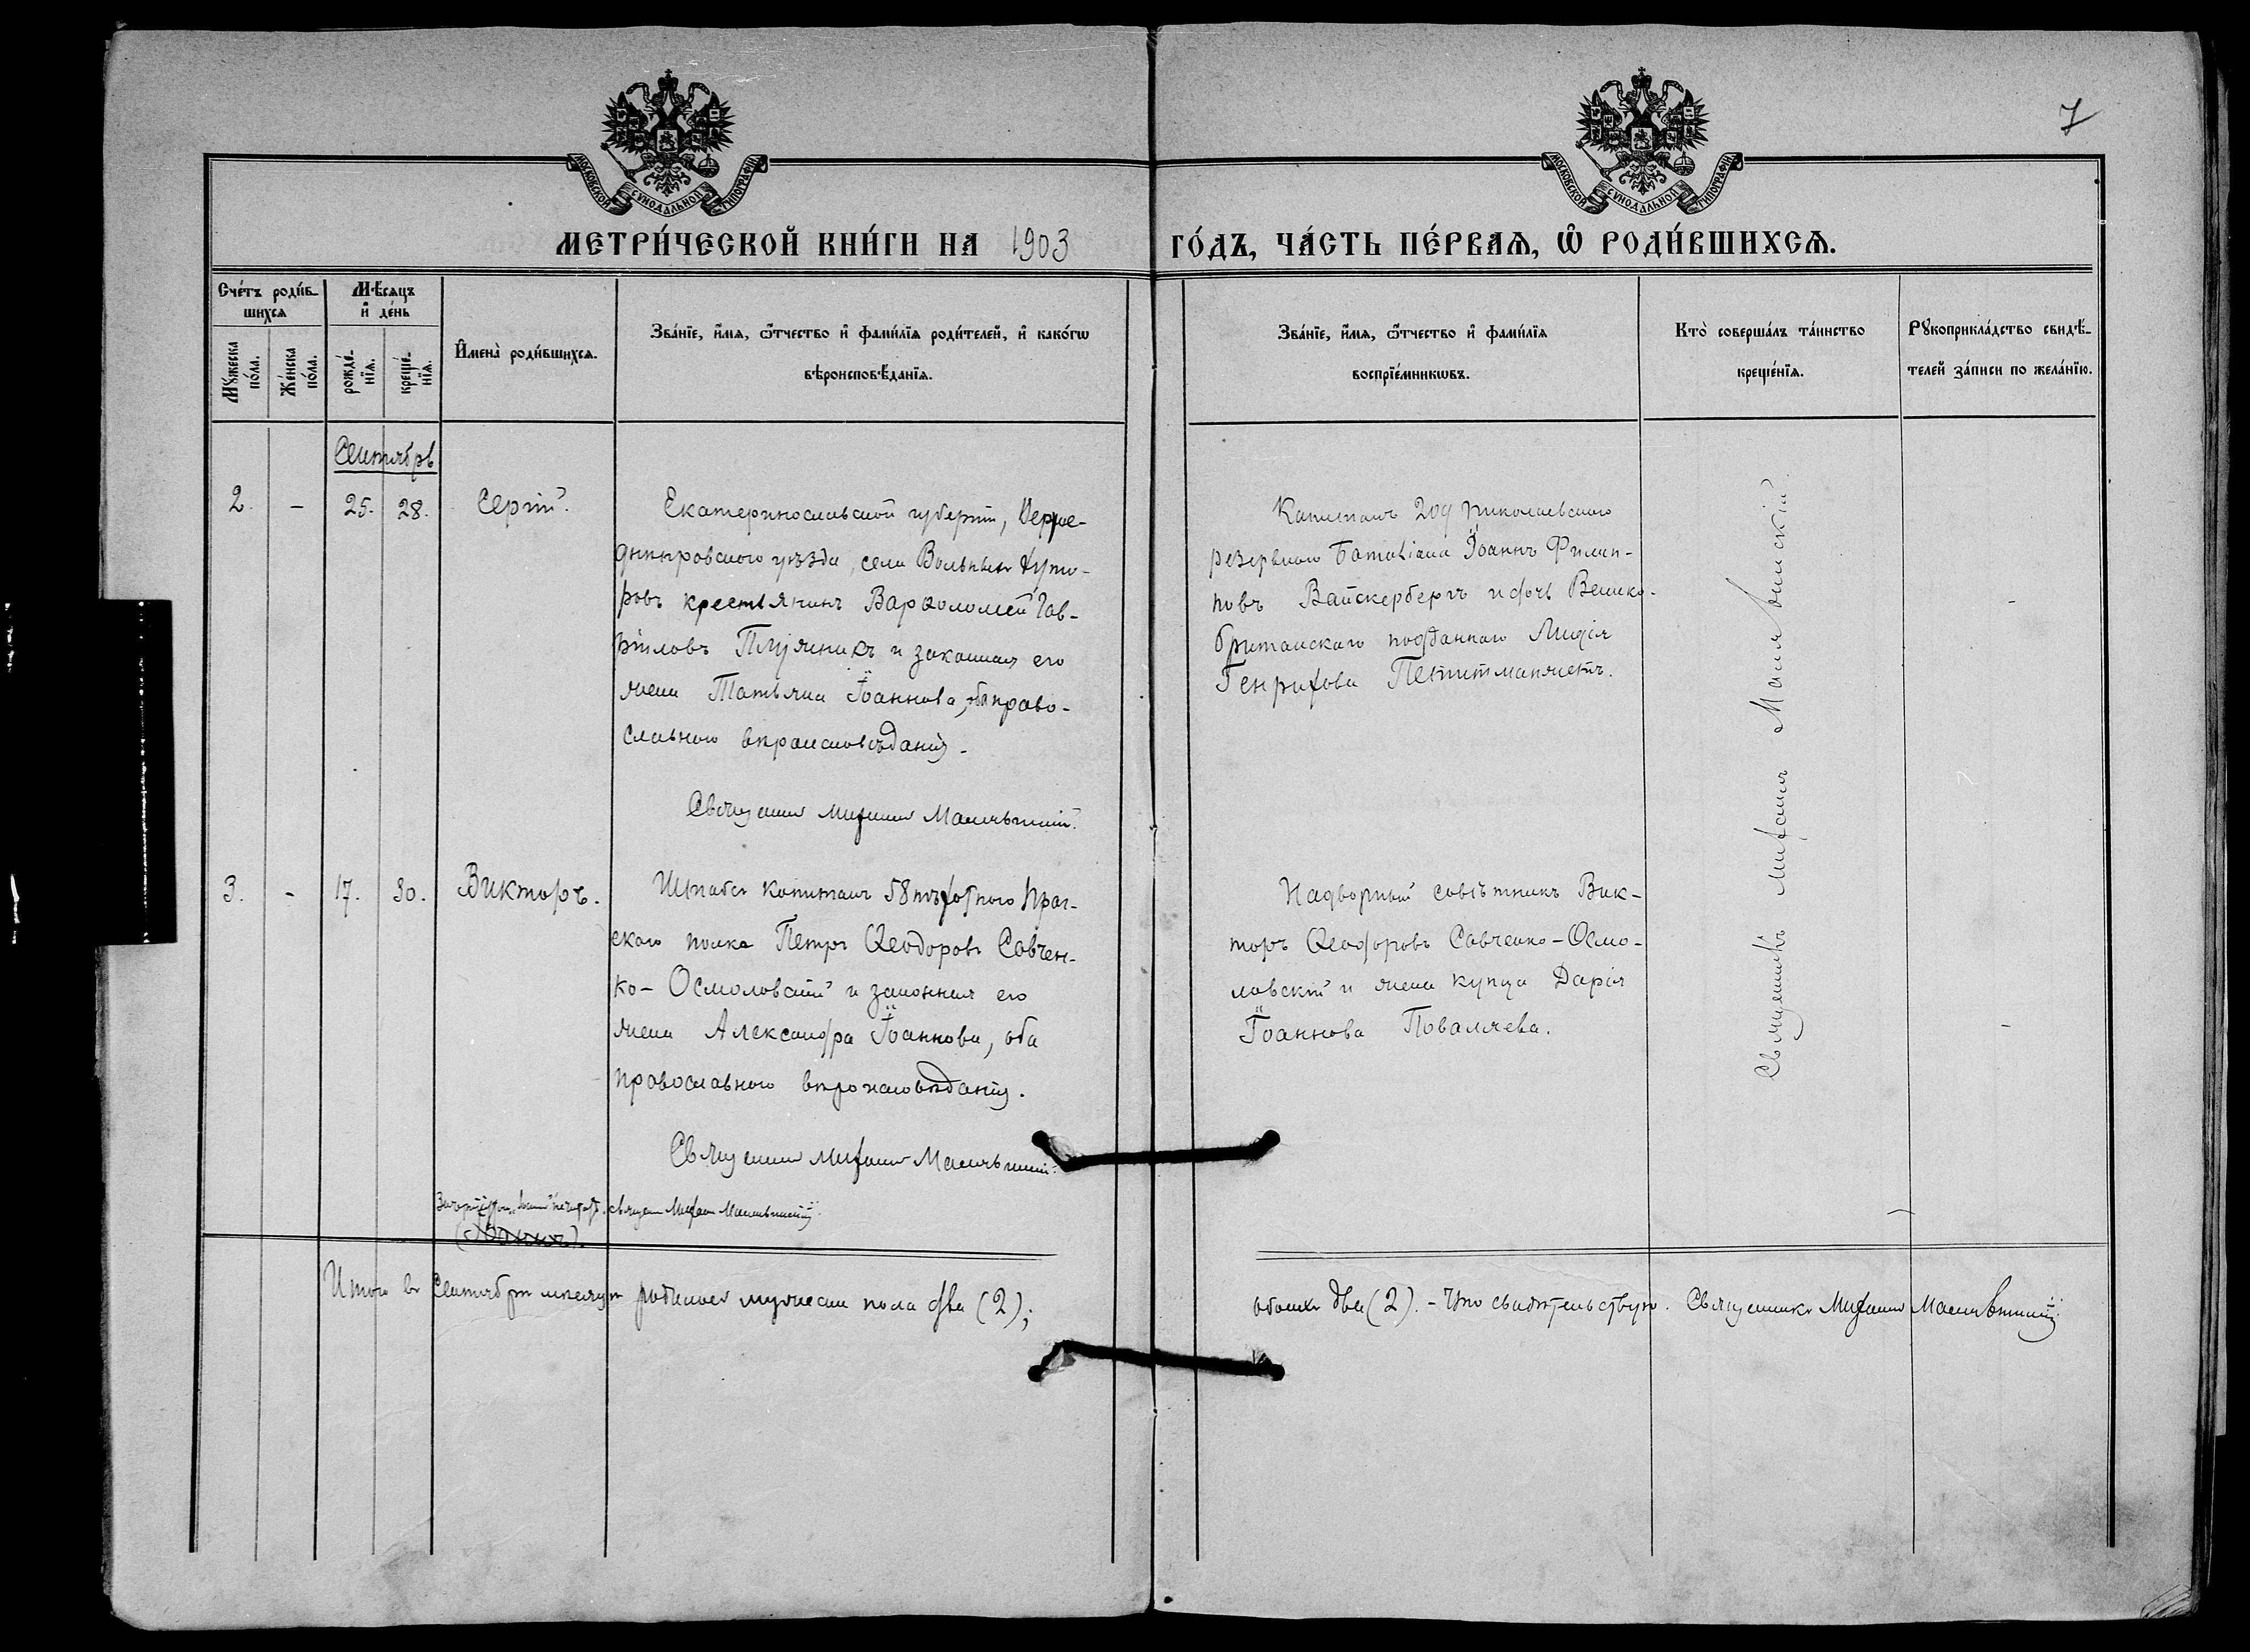 МОСКОВСКОЙ СѴНОДАЛЬНОЙ ТИПОГРАФІИ
МОСКОВСКОЙ СѴНОДАЛЬНОЙ ТИПОГРАФІИ
7
МЕТРИ́ЧЕСКОЙ КНИ́ГИ НА 1903 ГО́ДЪ, ЧА́СТЬ ПЕ́РВАѦ, Ѡ РОДИ́ВШИХСѦ.
Сче́тъ роди́в-
шихсѧ
Мѣ́сѧцъ
и҆ де́нь
Мꙋ́жеска
по́ла.
Же́нска
по́ла.
рожде́-
нїѧ.
креще́-
нїѧ.
И҆мена̀ роди́вшихсѧ.
Зва́нїе, и҆́мѧ, ѻ҆́тчество и҆ фами́лїѧ роди́телей, и҆ како́гѡ
вѣроисповѣ́данїѧ.
Зва́нїе, и҆́мѧ, ѻ҆́тчество и҆ фами́лїѧ
воспрїе́мникѡвъ.
Кто̀ соверша́лъ та́инство
креще́нїѧ.
Рꙋкоприкла́дство свидѣ́-
телей за́писи по жела́нїю.
Сентябрь
2. - 25. 28. Сергій.
Екатеринославской губерніи, Верхне-
днѣпровскаго уѣзда, села Вольныхъ Хуто-
ровъ крестьянинъ Варѳоломей Гав-
ріиловъ и законная его
жена Татьяна Іоаннова, оба право-
славнаго вѣроисповѣданія.
Священникъ Михаилъ
Капитанъ 209 Николаевскаго
резервнаго баталіона Іоаннъ Филип-
повъ Вайскербергъ и дочь Велико-
британскаго подданнаго Лидія
Генрихова
-
Священникъ Михаилъ
3. - 17. 30. Викторъ.
Штабсъ капитанъ 58 пѣхотнаго Праг-
скаго полка Петръ Ѳеодоровъ Савчен-
ко-Осмоловскій и законная его
жена Александра Іоаннова, оба
православнаго вѣроисповѣданія.
Священникъ Михаилъ
Надворный совѣтникъ Вик-
торъ Ѳеодоровъ Савченко-Осмо-
ловскій и жена купца Дарія
Іоаннова Поваляева.
-
Итого въ Сентябрѣ мѣсяцѣ родилось мужеска пола два (2);
обоихъ два (2). - Что свидѣтельствую. Священникъ Михаилъ